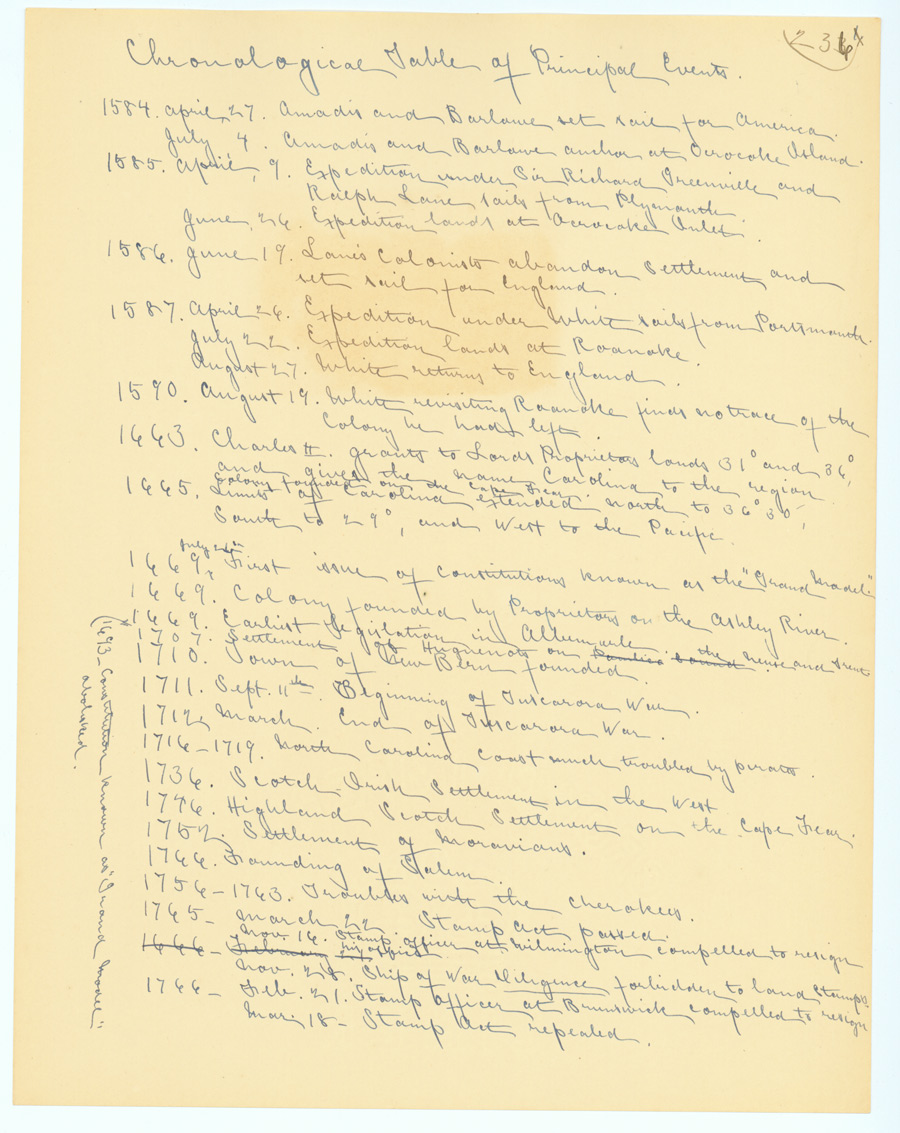 236
Chronological Table of Principal Events.
1584. April, 27. Amadis and Barlowe set sail for America.
July, 4. Amadis and Barlowe anchor at Ocrocoke Island.
1585. April, 9. Expedition under Sir Richard Greenville and
Ralph Lane sails from Plymouth.
June, 26. Expedition lands at Ocrocoke Inlet.
1586. June 19. Lane's Colonists abandon Settlement and
set sail for England.
1587. April 26. Expedition under White sails from Portsmouth.
July 22. Expedition lands at Roanoke.
August 27. White returns to England.
1590. August 19. White revisiting Roanoke finds no trace of the
Colony he had left.
1663. Charles II. grants to Lords Proprietors lands 31° and 36°,
and gives the name Carolina to the region.
Colony founded on the Cape Fear.
1665. Limits of Carolina extended north to 36° 30',
South to 29°, and West to the Pacific.
1669, July First issue of constitutions known as the "Grand Model"
1669. Colony founded by Proprietors on the Ashley River.
1669. Earliest Legislation in Albemarle.
1707. Settlement of Huguenots on Pamlico Sound the Neuse and Trent
1710. Town of New Bern founded.
(1693 - Constitution known as "Grand Model"
abolished.
1711. Sept. 11th. Beginning of Tuscarora War.
1712, March. End of Tuscarora War.
1716-1719. North Carolina coast much troubled by pirates.
1736. Scotch-Irish Settlement in the West
1746. Highland Scotch Settlement on the Cape Fear.
1752. Settlement of Moravians.
1766. Founding of Salem.
1756-1763. Troubles with the Cherokees.
1765- March 22. Stamp Act passed.
Nov. 16. Stamp officer at Wilmington compelled to resign
his office
1666 - February
Nov. 28. Ship of War Diligence forbidden to land Stamps.
1766 - Feb. 21. Stamp officer at Brunswick compelled to resign
Mar. 18 - Stamp Act repealed.